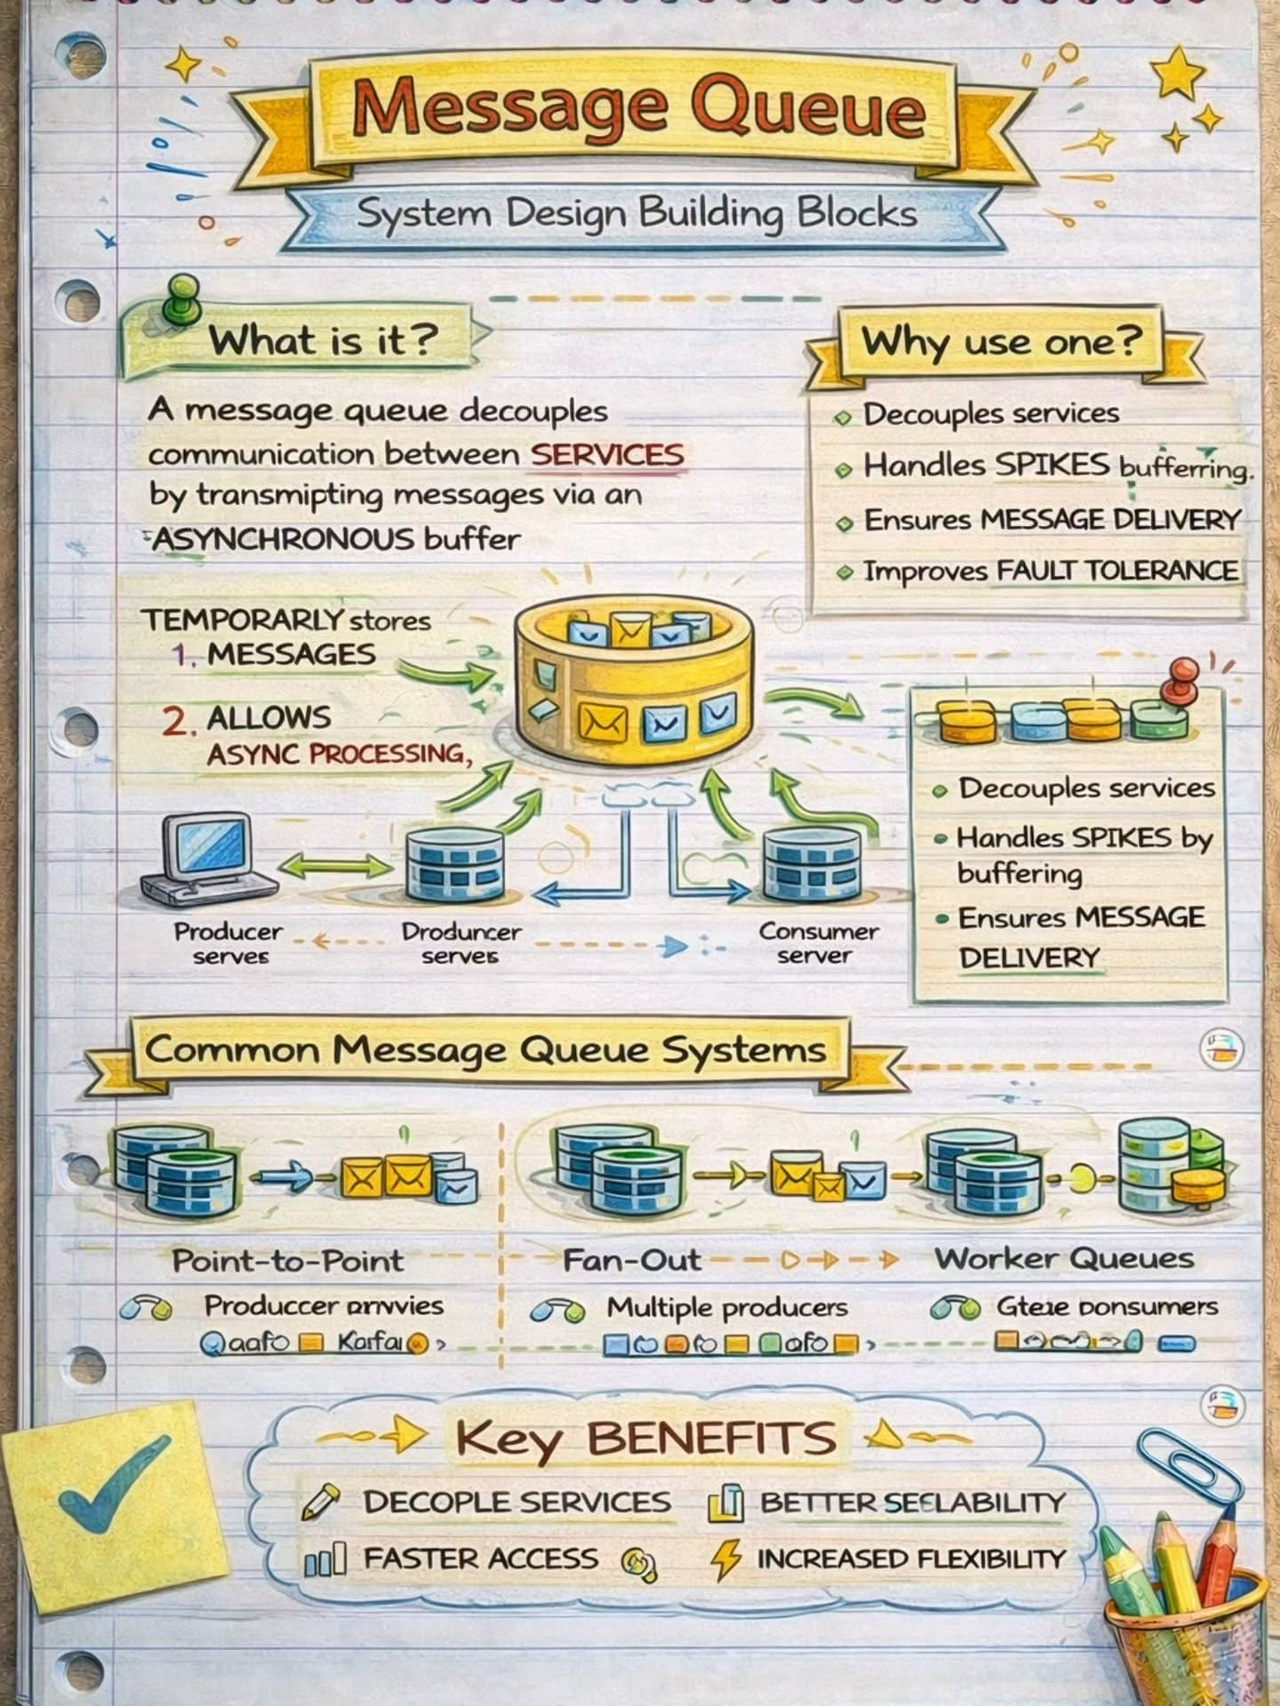 Message Queue
System Design Building Blocks
What is it?
A message queue decouples
communication between SERVICES
by transmipting messages via an
ASYNCHRONOUS buffer
Why use one?
Decouples services
Handles SPIKES bufferring.
Ensures MESSAGE DELIVERY
Improves FAULT TOLERANCE
TEMPORARLY stores
1. MESSAGES
2. ALLOWS
ASYNC PROCESSING,
Decouples services
Handles SPIKES by
buffering
Ensures MESSAGE
DELIVERY
Producer
serves
Drodurcer
serves
Consumer
server
Common Message Queue Systems
Point-to-Point
Fan-Out
Worker Queues
Produccer
Multiple producers
Key BENEFITS
DECOPLE SERVICES
BETTER SEELABILITY
FASTER ACCESS
INCREASED FLEXIBILITY